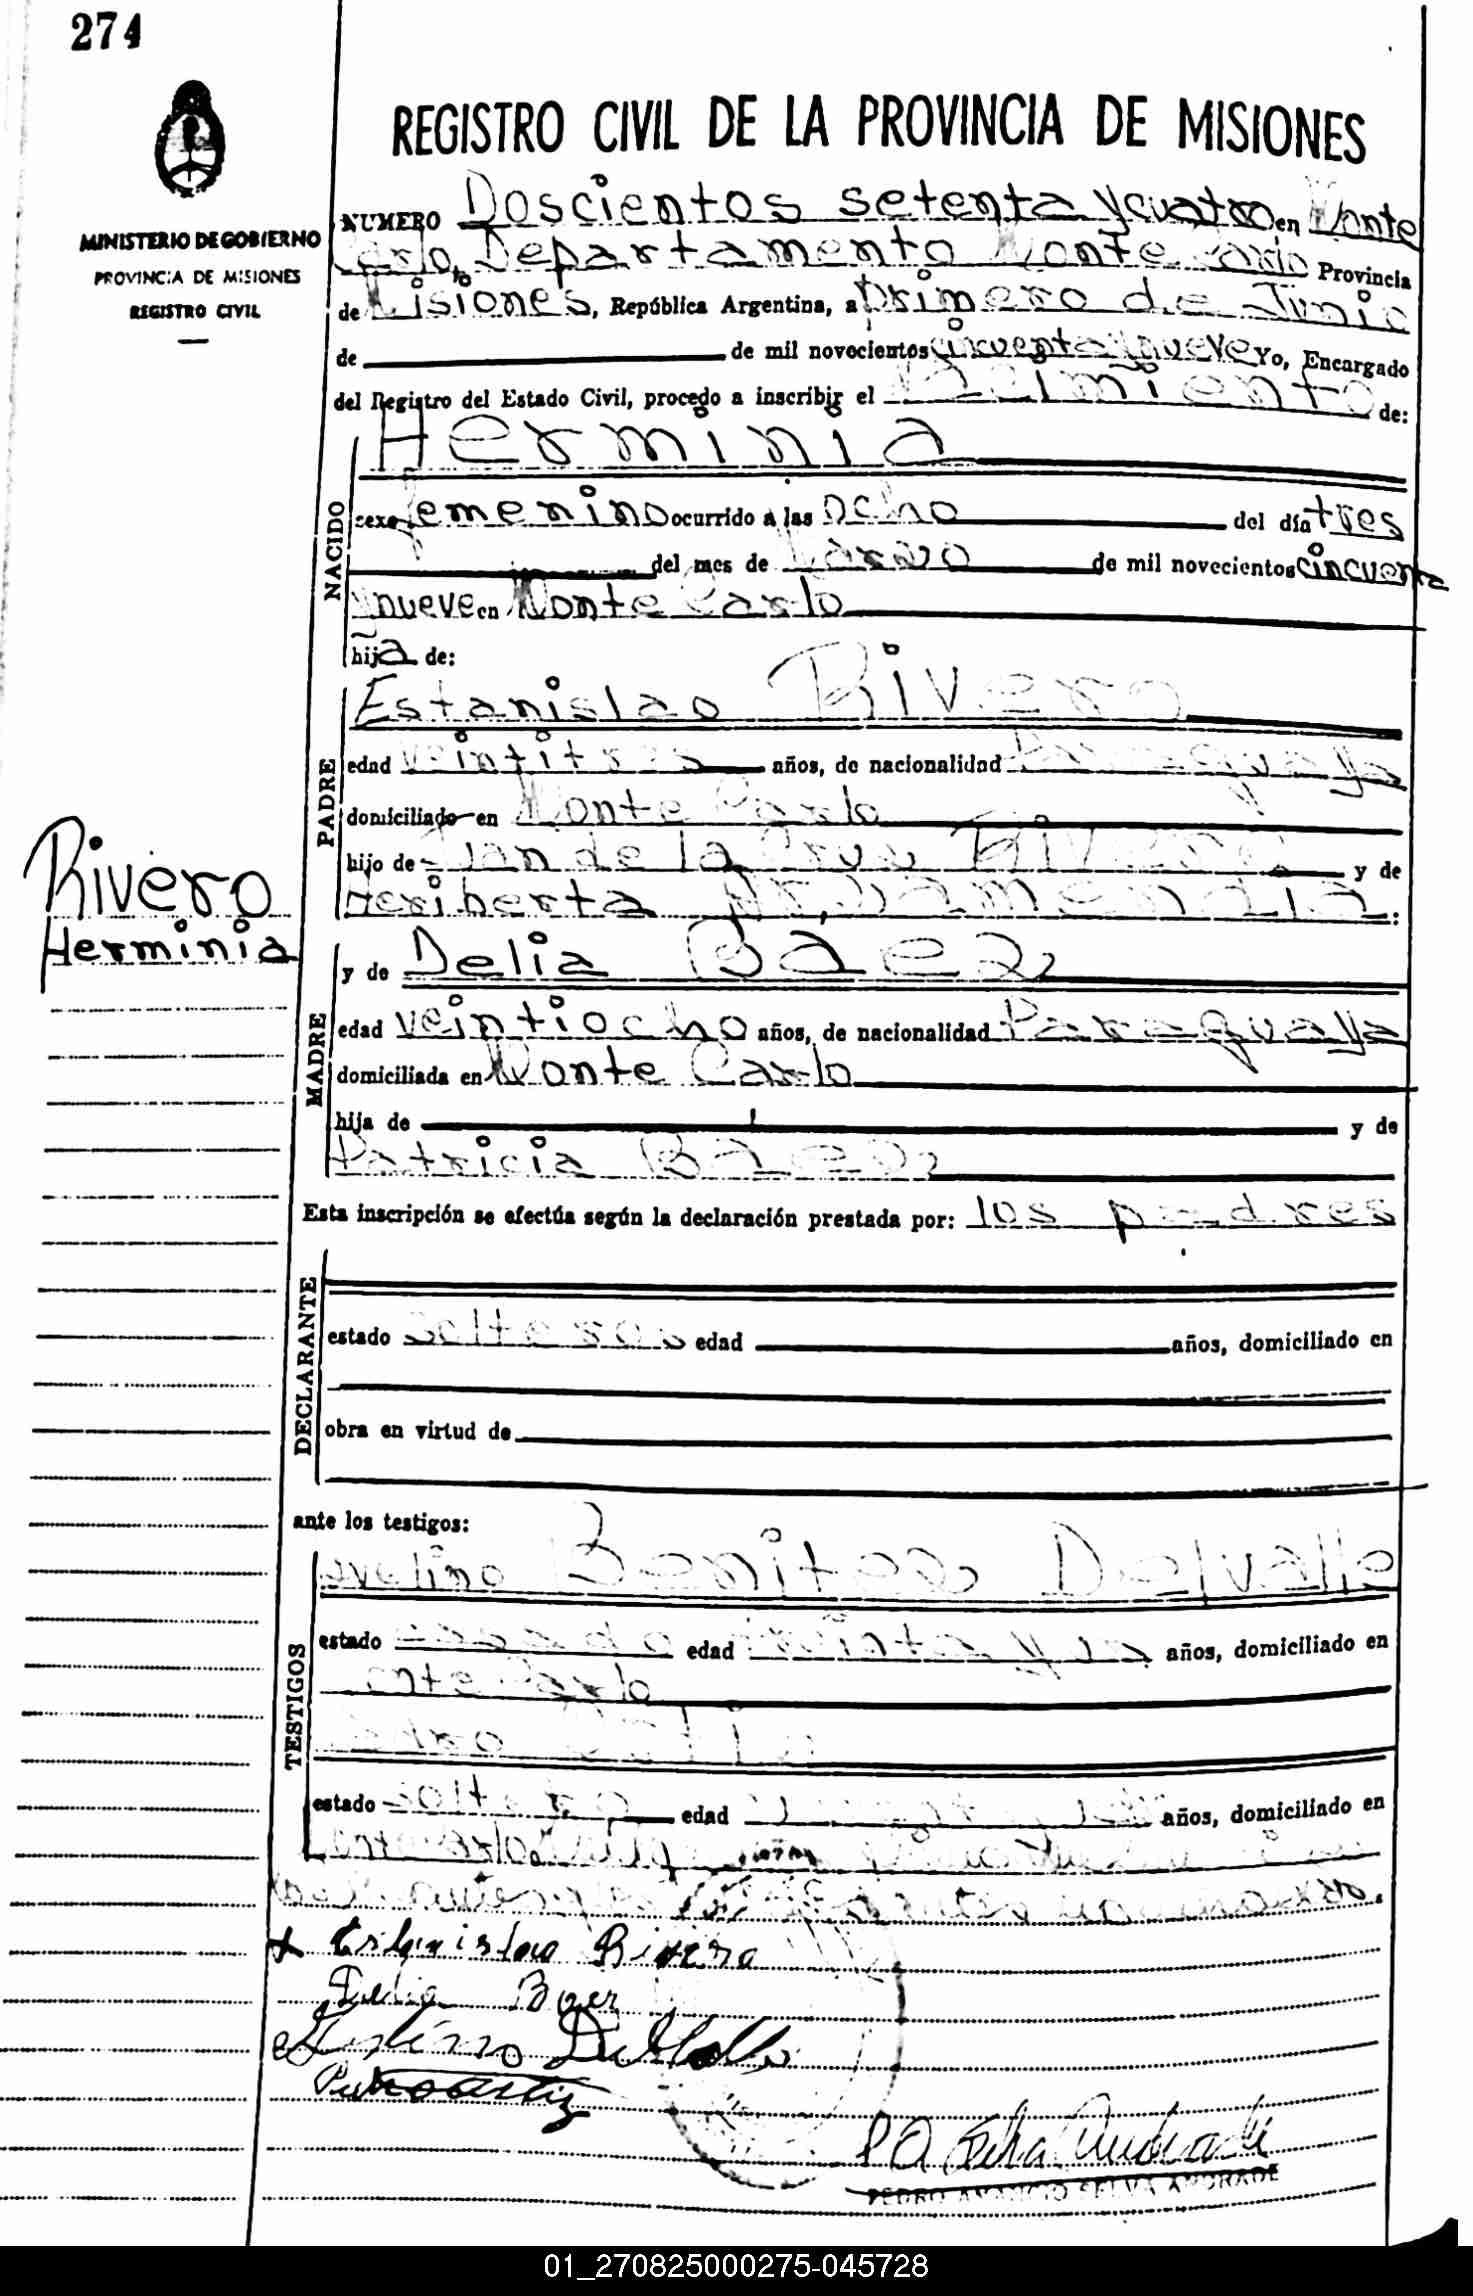 274
MINISTERIO DE GOBIERNO
PROVINCIA DE MISIONES
REGISTRO CIVIL
REGISTRO CIVIL DE LA PROVINCIA DE MISIONES
NUMERO Doscientos setenta y cuatro en Monte
Carlo, Departamento Monte Carlo Provincia
de Misiones, República Argentina, a primero de Junio
de de mil novecientos cincuenta y nueve Yo, Encargado
del Registro del Estado Civil, procedo a inscribir el Nacimiento de:
NACIDO
Herminia
sexo femenino ocurrido a las ocho del día tres
del mes de Marzo de mil novecientos cincuenta
y nueve en Monte Carlo
hija de:
PADRE
Estanislao Rivero
edad veintitres años, de nacionalidad Paraguaya
domiciliado en Monte Carlo
hijo de Juan de la Cruz Rivero y de
Heriberta
Rivero
Herminia
MADRE
y de Delia Báez
edad veintiocho años, de nacionalidad Paraguaya
domiciliada en Monte Carlo
hija de y de
Patricia Báez
Esta inscripción se efectúa según la declaración prestada por: los padres
DECLARANTE
estado solteros edad años, domiciliado en
obra en virtud de
ante los testigos:
TESTIGOS
Avelino Benitez Delvalle
estado casado edad treinta y un años, domiciliado en
Monte Carlo
estado soltero edad años, domiciliado en
Estanislao Rivero
Delia Baez
PEDRO AMANCIO SELVA ANDRADE
01_270825000275-045728